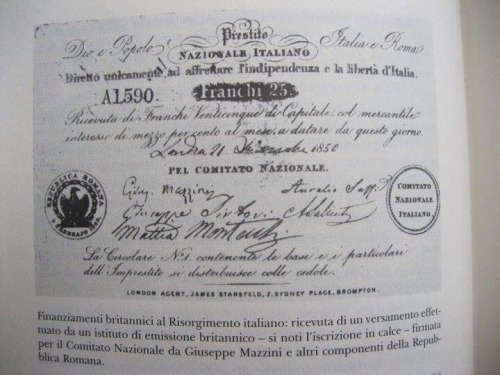 Prestito
Dio e Popolo NAZIONALE ITALIANO Italia e Roma
Diretto unicamente ad affrettare l'indipendenza e la libertà d'Italia.
A1590. Franchi 25.
Ricevuta di Franchi Venticinque di Capitale, col mercantile
interesso di mezzo per cento al mese, a datare da questo giorno.
Londra 1850
PEL COMITATO NAZIONALE.
Gius. Mazzini Aurelio Saffi
Giuseppe Sirtori
Mattia Montecchi
REPUBBLICA ROMANA
COMITATO
NAZIONALE
ITALIANO
La Circolare N.1. contenente le basi e i particolari
dell'Imprestito si distribuisce colle cedole.
LONDON AGENT, JAMES STANSFELD, 2, SYDNEY PLACE, BROMPTON.
Finanziamenti britannici al Risorgimento italiano: ricevuta di un versamento effet-
tuato da un istituto di emissione britannico – si noti l'iscrizione in calce – firmata
per il Comitato Nazionale da Giuseppe Mazzini e altri componenti della Repub
blica Romana.